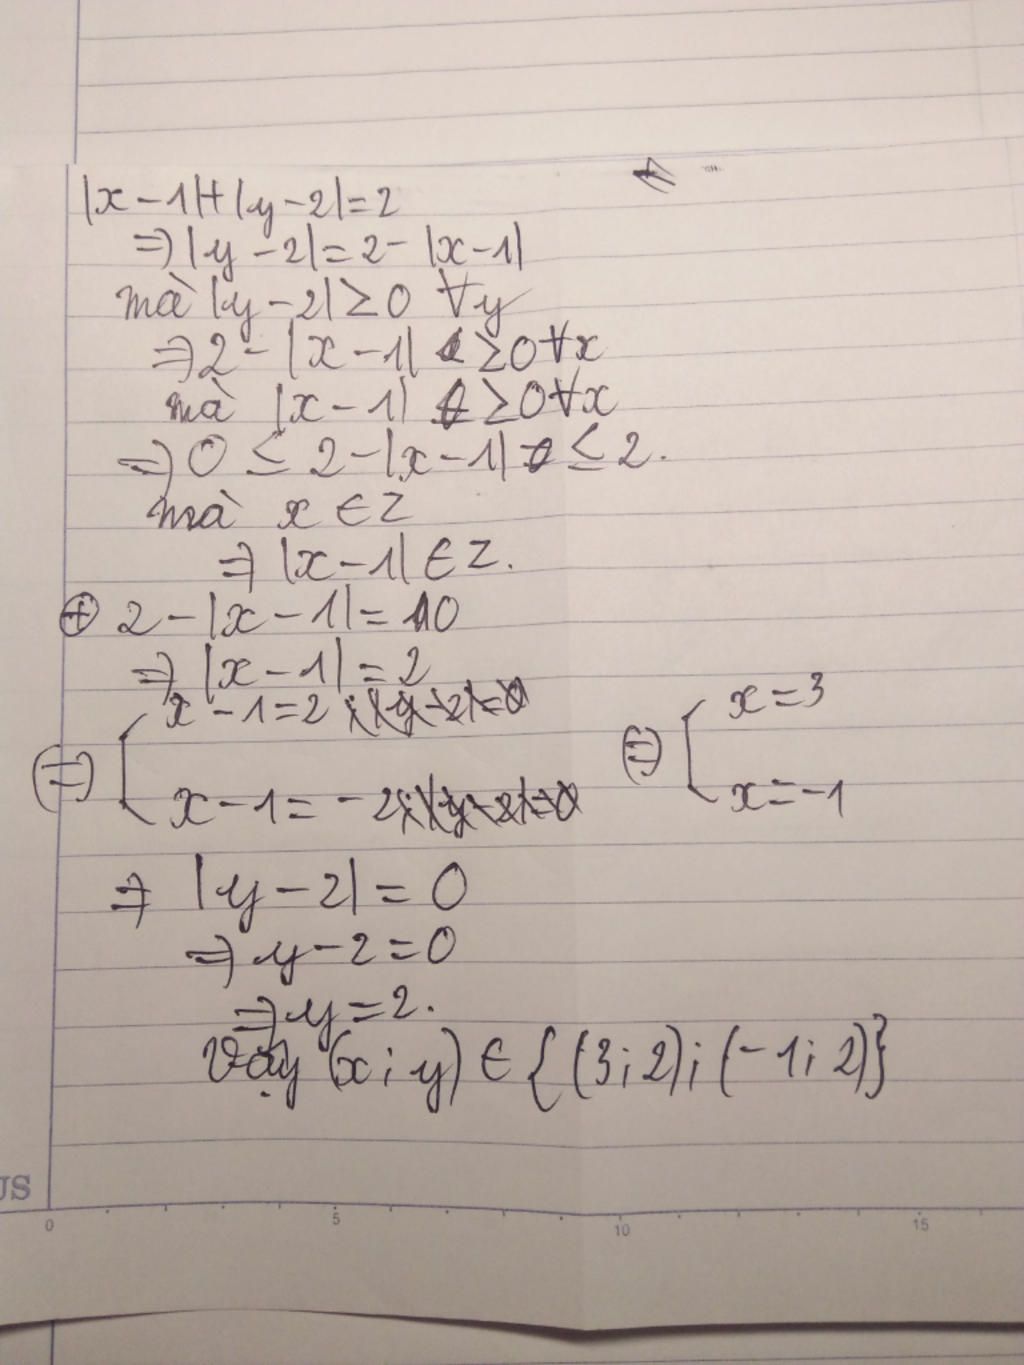 |x - 1| + |y - 2| = 2
⇒ |y - 2| = 2 - |x - 1|
mà |y - 2| ≥ 0 ∀y
⇒ 2 - |x - 1| ≥ 0 ∀x
mà |x - 1| ≥ 0 ∀x
⇒ 0 ≤ 2 - |x - 1| ≤ 2.
mà x ∈ Z
⇒ |x - 1| ∈ Z.
⊕ 2 - |x - 1| = 0
⇒ |x - 1| = 2
(⇒) [ x - 1 = 2 (⇒) [ x = 3
x - 1 = - 2 x = -1
⇒ |y - 2| = 0
⇒ y - 2 = 0
⇒ y = 2.
Vậy (x ; y) ∈ {(3 ; 2) ; (-1 ; 2)}
US
0 5 10 15